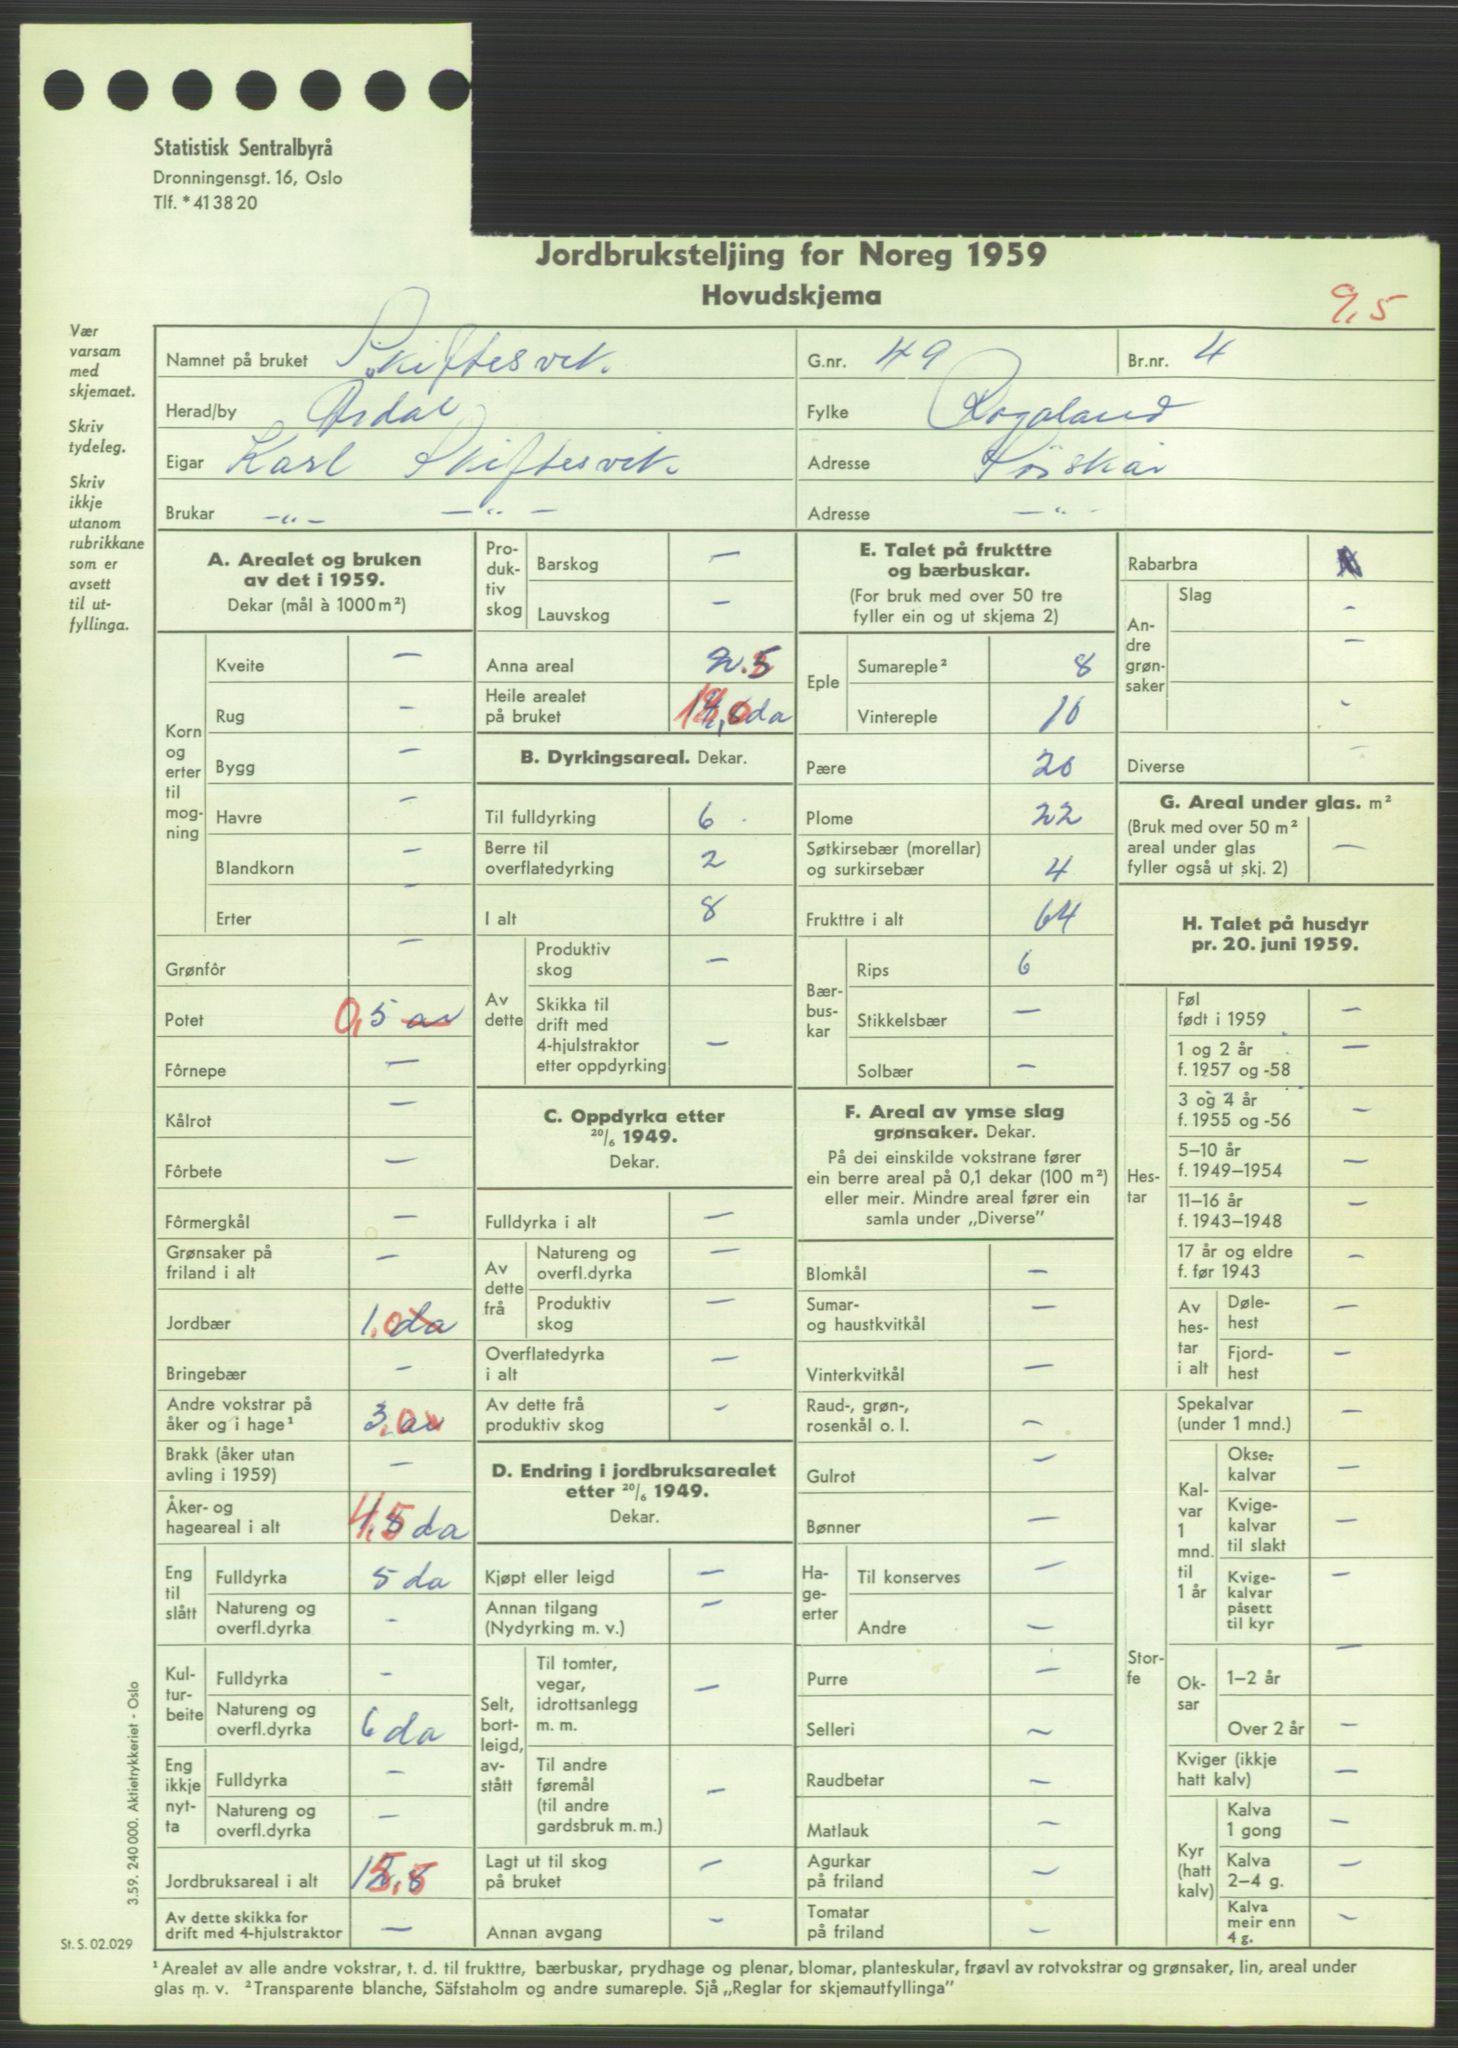 Statistisk Sentralbyrå
Dronningensgt. 16, Oslo
Tlf. * 41 38 20
Jordbruksteljing for Noreg 1959
Hovudskjema
9,5
Vær varsam med skjemaet.
Skriv tydeleg.
Skriv ikkje utanom rubrikkane som er avsett til utfyllinga.
Namnet på bruket Skiftesvik. G.nr. 49 Br.nr. 4
Herad/by Årdal Fylke Rogaland
Eigar Karl Skiftesvik. Adresse
Brukar -"- -"- Adresse -"-
A. Arealet og bruken
av det i 1959.
Dekar (mål à 1000 m²)
Korn og erter til mogning
Kveite –
Rug –
Bygg –
Havre –
Blandkorn –
Erter –
Grønfôr –
Potet 0,5 ar
Fôrnepe –
Kålrot –
Fôrbete –
Fôrmergkål –
Grønsaker på
friland i alt –
Jordbær 1,0 da
Bringebær –
Andre vokstrar på
åker og i hage¹ 3,0
Brakk (åker utan
avling i 1959) –
Åker- og
hageareal i alt 4,5 da
Eng til slått
Fulldyrka 5 da
Natureng og
overfl.dyrka –
Kulturbeite
Fulldyrka –
Natureng og
overfl.dyrka 6 da
Eng ikkje nytta
Fulldyrka –
Natureng og
overfl.dyrka –
Jordbruksareal i alt 15,5
Av dette skikka for
drift med 4-hjulstraktor –
Produktiv skog
Barskog –
Lauvskog –
Anna areal 2.5
Heile arealet
på bruket da
B. Dyrkingsareal. Dekar.
Til fulldyrking 6
Berre til
overflatedyrking 2
I alt 8
Av dette
Produktiv
skog –
Skikka til
drift med
4-hjulstraktor
etter oppdyrking –
C. Oppdyrka etter
20/6 1949.
Dekar.
Fulldyrka i alt –
Av dette frå
Natureng og
overfl.dyrka –
Produktiv
skog –
Overflatedyrka
i alt –
Av dette frå
produktiv skog –
D. Endring i jordbruksarealet
etter 20/6 1949.
Dekar.
Kjøpt eller leigd –
Annan tilgang
(Nydyrking m. v.) –
Selt, bortleigd, avstått
Til tomter,
vegar,
idrottsanlegg
m. m. –
Til andre
føremål
(til andre
gardsbruk m. m.) –
Lagt ut til skog
på bruket –
Annan avgang –
E. Talet på frukttre
og bærbuskar.
(For bruk med over 50 tre
fyller ein og ut skjema 2)
Eple
Sumareple² 8
Vintereple 10
Pære 20
Plome 22
Søtkirsebær (morellar)
og surkirsebær 4
Frukttre i alt 64
Bærbuskar
Rips 6
Stikkelsbær –
Solbær –
F. Areal av ymse slag
grønsaker. Dekar.
På dei einskilde vokstrane fører
ein berre areal på 0,1 dekar (100 m²)
eller meir. Mindre areal fører ein
samla under „Diverse”
Blomkål –
Sumar-
og haustkvitkål –
Vinterkvitkål –
Raud-, grøn-,
rosenkål o. l. –
Gulrot –
Bønner –
Hageerter
Til konserves –
Andre –
Purre –
Selleri –
Raudbetar –
Matlauk –
Agurkar
på friland –
Tomatar
på friland –
Rabarbra
Andre grønsaker
Slag –
–
–
Diverse –
G. Areal under glas. m²
(Bruk med over 50 m²
areal under glas
fyller også ut skj. 2) –
H. Talet på husdyr
pr. 20. juni 1959.
Hestar
Føl
født i 1959 –
1 og 2 år
f. 1957 og -58 –
3 og 4 år
f. 1955 og -56 –
5–10 år
f. 1949–1954 –
11–16 år
f. 1943–1948 –
17 år og eldre
f. før 1943 –
Av hestar i alt
Dølehest –
Fjordhest –
Storfe
Spekalvar
(under 1 mnd.) –
Kalvar 1 mnd. til 1 år
Oksekalvar –
Kvigekalvar
til slakt –
Kvigekalvar
påsett
til kyr –
Oksar
1–2 år –
Over 2 år –
Kviger (ikkje
hatt kalv) –
Kyr (hatt kalv)
Kalva
1 gong –
Kalva
2–4 g. –
Kalva
meir enn
4 g. –
3.59. 240 000. Aktietrykkeriet - Oslo
St. S. 02.029
¹ Arealet av alle andre vokstrar, t. d. til frukttre, bærbuskar, prydhage og plenar, blomar, planteskular, frøavl av rotvokstrar og grønsaker, lin, areal under
glas m. v. ² Transparente blanche, Säfstaholm og andre sumareple. Sjå „Reglar for skjemautfyllinga”